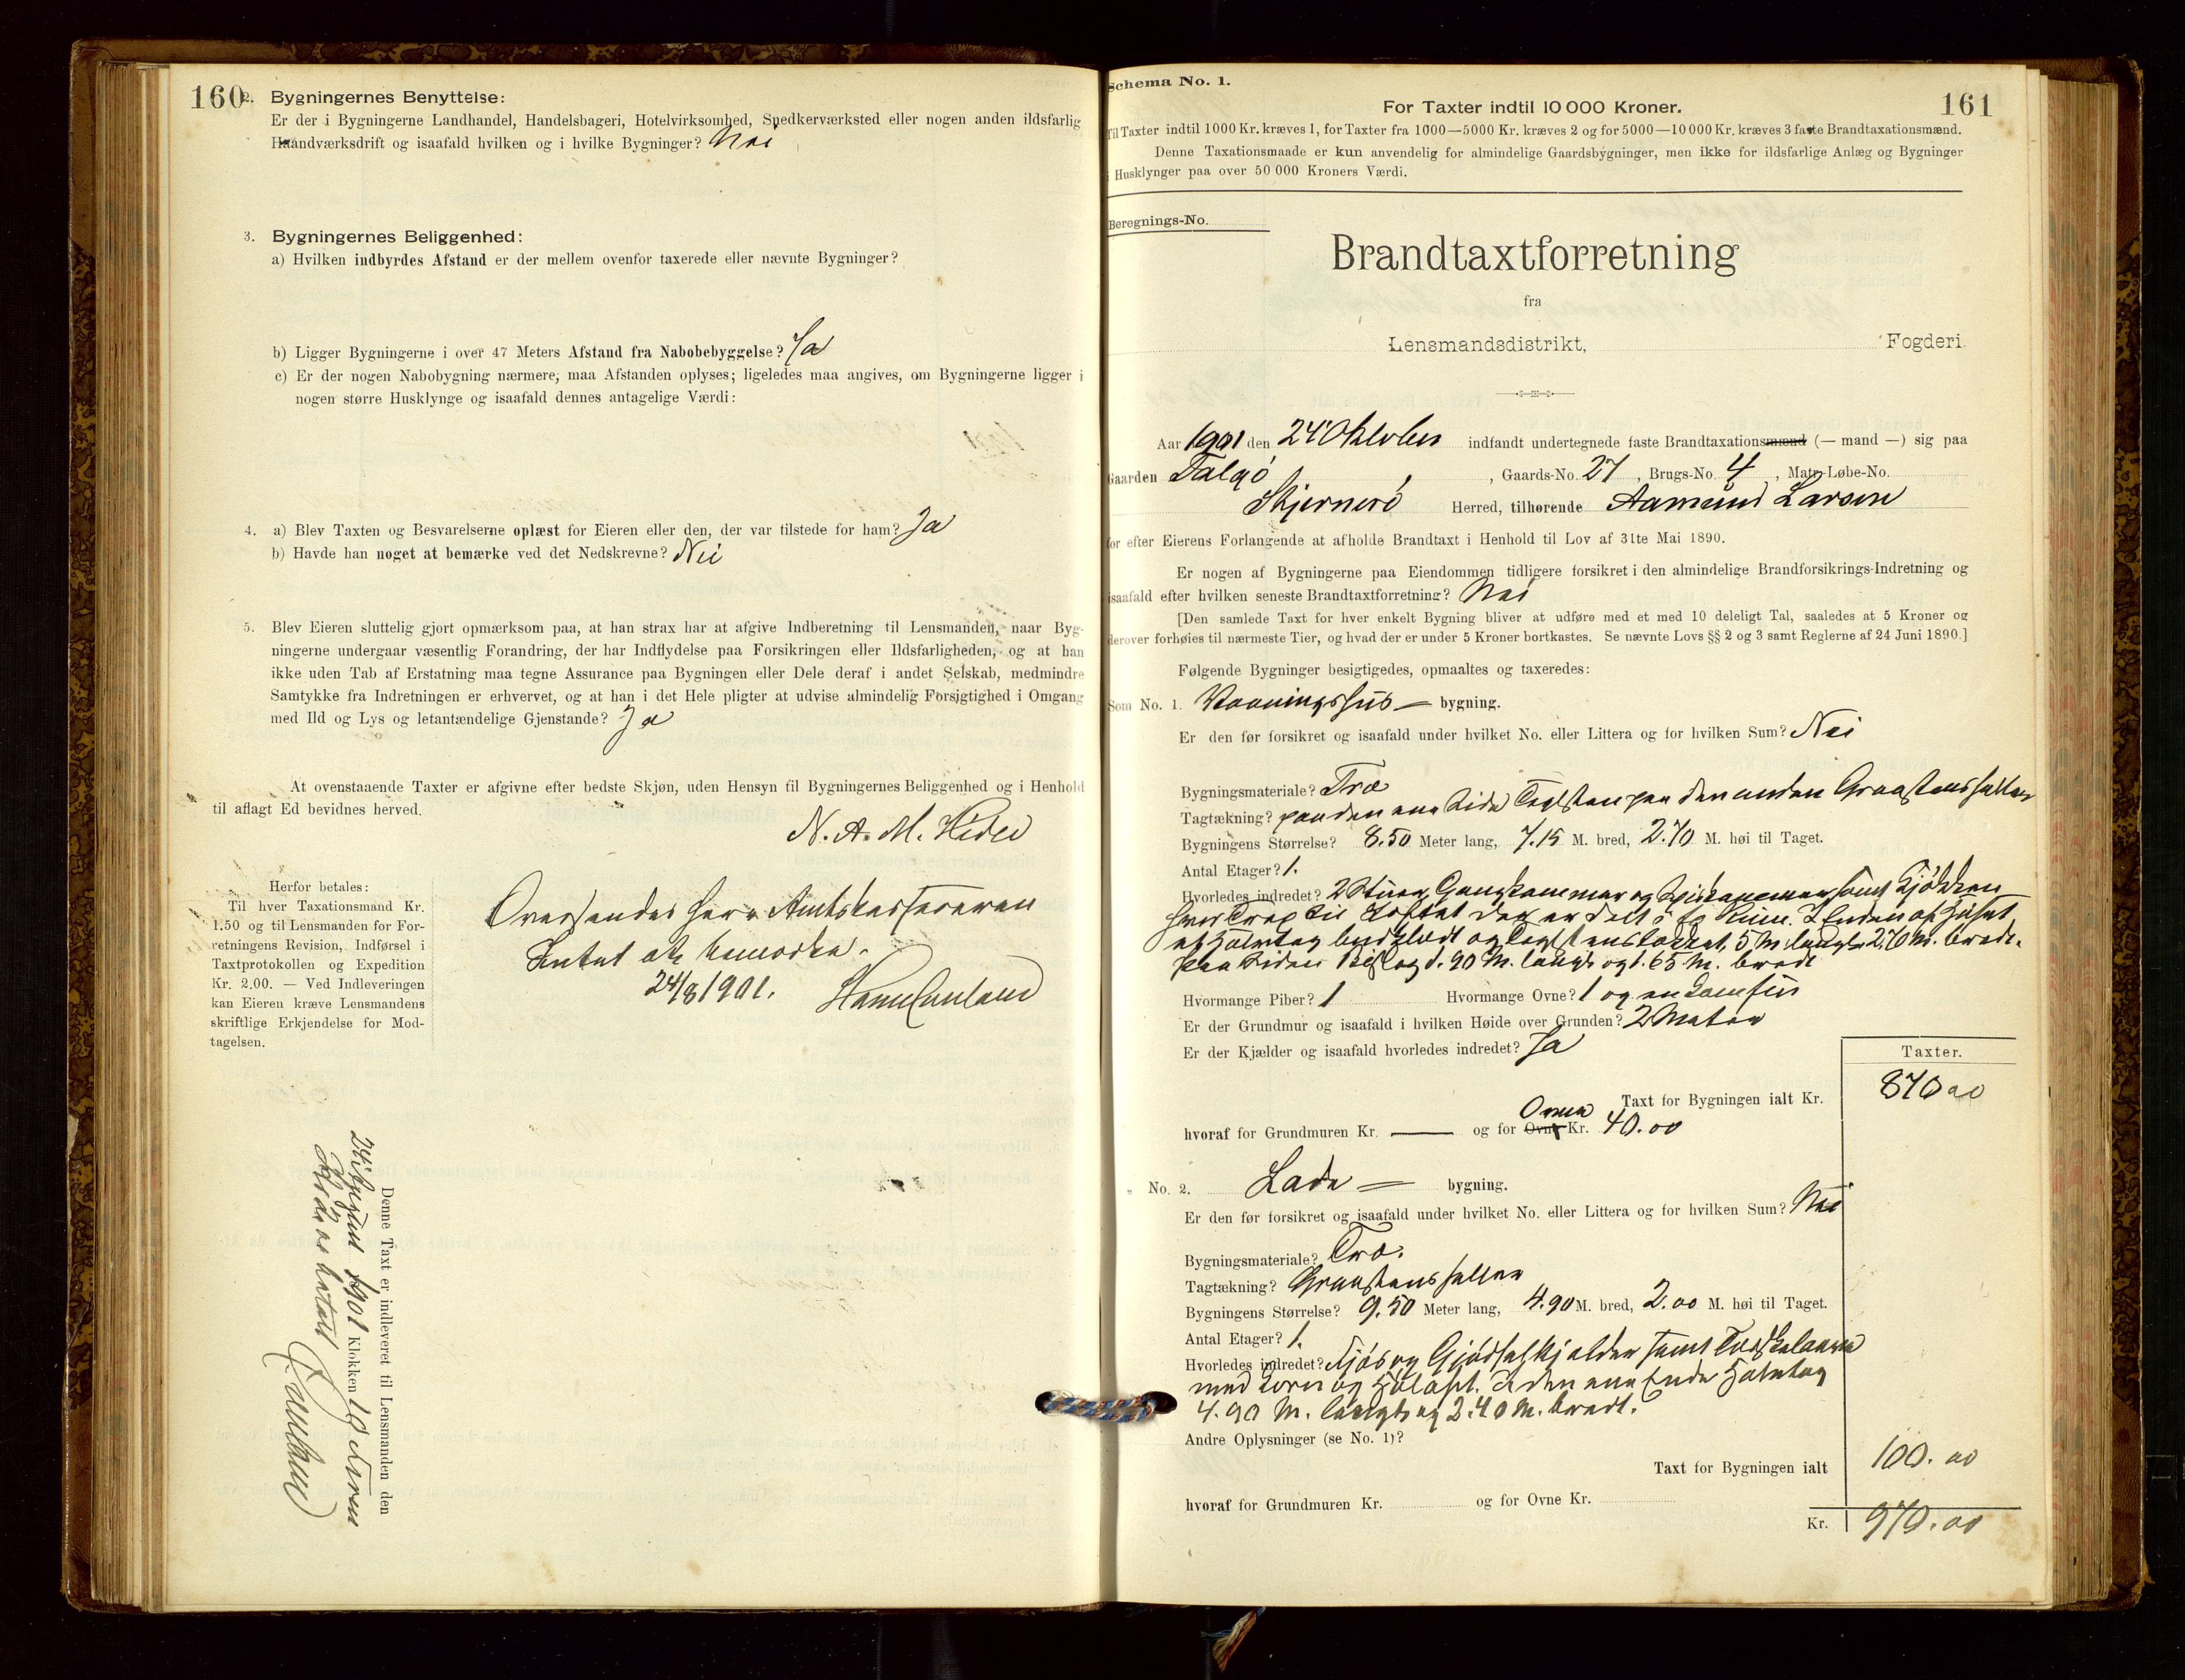 160
2. Bygningernes Benyttelse:
Er der i Bygningerne Landhandel, Handelsbageri, Hotelvirksomhed, Snedkerværksted eller nogen anden ildsfarlig
Haandværksdrift og isaafald hvilken og i hvilke Bygninger? Nei
3. Bygningernes Beliggenhed:
a) Hvilken indbyrdes Afstand er der mellem ovenfor taxerede eller nævnte Bygninger?
b) Ligger Bygningerne i over 47 Meters Afstand fra Nabobebyggelse? Ja
c) Er der nogen Nabobygning nærmere, maa Afstanden oplyses; ligeledes maa angives, om Bygningerne ligger i
nogen større Husklynge og isaafald dennes antagelige Værdi:
4. a) Blev Taxten og Besvarelserne oplæst for Eieren eller den, der var tilstede for ham? Ja
b) Havde han noget at bemærke ved det Nedskrevne? Nei
5. Blev Eieren sluttelig gjort opmærksom paa, at han strax har at afgive Indberetning til Lensmanden, naar Byg-
ningerne undergaar væsentlig Forandring, der har Indflydelse paa Forsikringen eller Ildsfarligheden, og at han
ikke uden Tab af Erstatning maa tegne Assurance paa Bygningen eller Dele deraf i andet Selskab, medmindre
Samtykke fra Indretningen er erhvervet, og at han i det Hele pligter at udvise almindelig Forsigtighed i Omgang
med Ild og Lys og letantændelige Gjenstande? Ja
At ovenstaaende Taxter er afgivne efter bedste Skjøn, uden Hensyn til Bygningernes Beliggenhed og i Henhold
til aflagt Ed bevidnes herved.
N. A. M. Hidle
Herfor betales:
Til hver Taxationsmand Kr.
1.50 og til Lensmanden for For-
retningens Revision, Indførsel i
Taxtprotokollen og Expedition
Kr. 2.00. — Ved Indleveringen
kan Eieren kræve Lensmandens
skriftlige Erkjendelse for Mod-
tagelsen.
Oversendes Herr Amtskassereren
Intet at bemærke.
24/8 1901.
Denne Taxt er indleveret til Lensmanden den
24 August 1901 Klokken 10 Form
er betalt
Schema No. 1.
161
For Taxter indtil 10 000 Kroner.
Til Taxter indtil 1000 Kr. kræves 1, for Taxter fra 1000—5000 Kr. kræves 2 og for 5000—10 000 Kr. kræves 3 faste Brandtaxationsmænd.
Denne Taxationsmaade er kun anvendelig for almindelige Gaardsbygninger, men ikke for ildsfarlige Anlæg og Bygninger
i Husklynger paa over 50 000 Kroners Værdi.
Beregnings-No.
Brandtaxtforretning
fra
Lensmandsdistrikt, Fogderi.
Aar 1901 den 24 Oktober indfandt undertegnede faste Brandtaxationsmænd (— mand —) sig paa
Gaarden Talgø, Gaards-No. 27, Brugs-No. 4, Matr.-Løbe-No.
Skjernerö Herred, tilhørende Aamund Larsen
for efter Eierens Forlangende at afholde Brandtaxt i Henhold til Lov af 31te Mai 1890.
Er nogen af Bygningerne paa Eiendommen tidligere forsikret i den almindelige Brandforsikrings-Indretning og
isaafald efter hvilken seneste Brandtaxtforretning? Nei
[Den samlede Taxt for hver enkelt Bygning bliver at udføre med et med 10 deleligt Tal, saaledes at 5 Kroner og
derover forhøies til nærmeste Tier, og hvad der er under 5 Kroner bortkastes. Se nævnte Lovs §§ 2 og 3 samt Reglerne af 24 Juni 1890.]
Følgende Bygninger besigtigedes, opmaaltes og taxeredes:
Som No. 1. Vaaningshus— bygning.
Er den før forsikret og isaafald under hvilket No. eller Littera og for hvilken Sum? Nei
Bygningsmateriale? Træ
Tagtækning? paa den ene Side Teglsten paa den anden Graastensheller
Bygningens Størrelse? 8.50 Meter lang, 7.15 M. bred, 2.70 M. høi til Taget.
Antal Etager? 1.
Hvorledes indredet? 2 Stuer, Gangkammer og Spiskammer samt Kjökken
hvor Trap til Loftet der er delt i Rum. I Enden af Huset
et Halvtag bordklædt og Teglstenstækket, 5 M. langt 2,70 M. bredt.
paa Siden Bislag 1.90 M. langt og 1.65 M. bredt
Hvormange Piber? 1 Hvormange Ovne? 1 og en Komfur
Er der Grundmur og isaafald i hvilken Høide over Grunden? 2 Meter
Er der Kjælder og isaafald hvorledes indredet? Ja
Taxter.
Taxt for Bygningen ialt Kr. 870 00
hvoraf for Grundmuren Kr. — og for Ovne Ovne Kr. 40.00
„ No. 2. Lade — bygning.
Er den før forsikret og isaafald under hvilket No. eller Littera og for hvilken Sum? Nei
Bygningsmateriale? Træ.
Tagtækning? Graastensheller
Bygningens Størrelse? 9.50 Meter lang, 4.90 M. bred, 2.00 M. høi til Taget.
Antal Etager? 1.
Hvorledes indredet? Fjös og Gjödselskjælder samt Tærskelaave
med Korn og Höloft. I den ene Ende Halvtag
4.90 M. langt og 2.40 M. bredt.
Andre Oplysninger (se No. 1)?
Taxt for Bygningen ialt 100.00
hvoraf for Grundmuren Kr. og for Ovne Kr.
Kr. 970.00